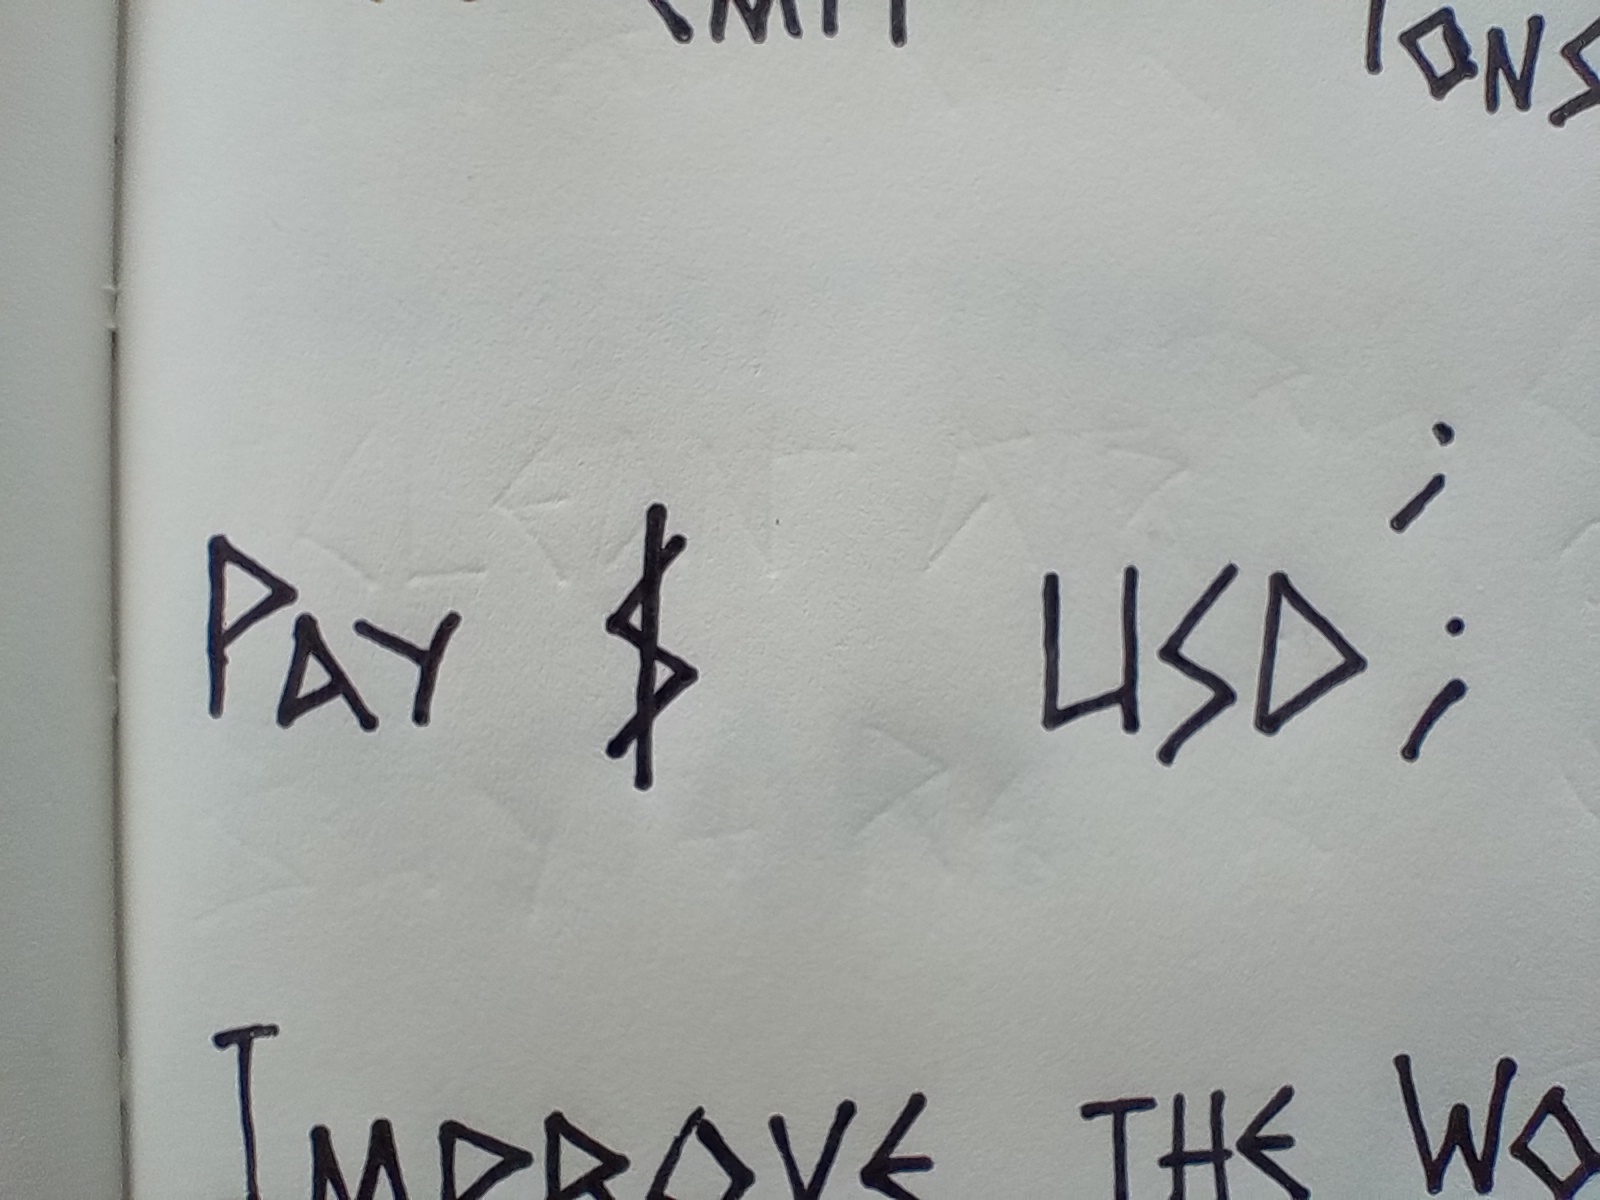 IONS
;
PAY $ USD ;
IMPROVE THE WO